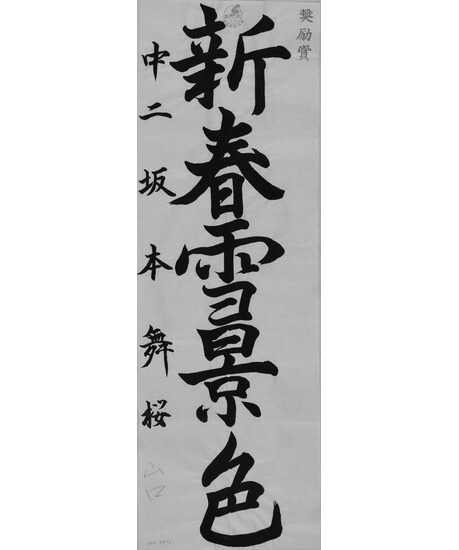 奨励賞
新春雪景色
中二 坂本舞桜
山口